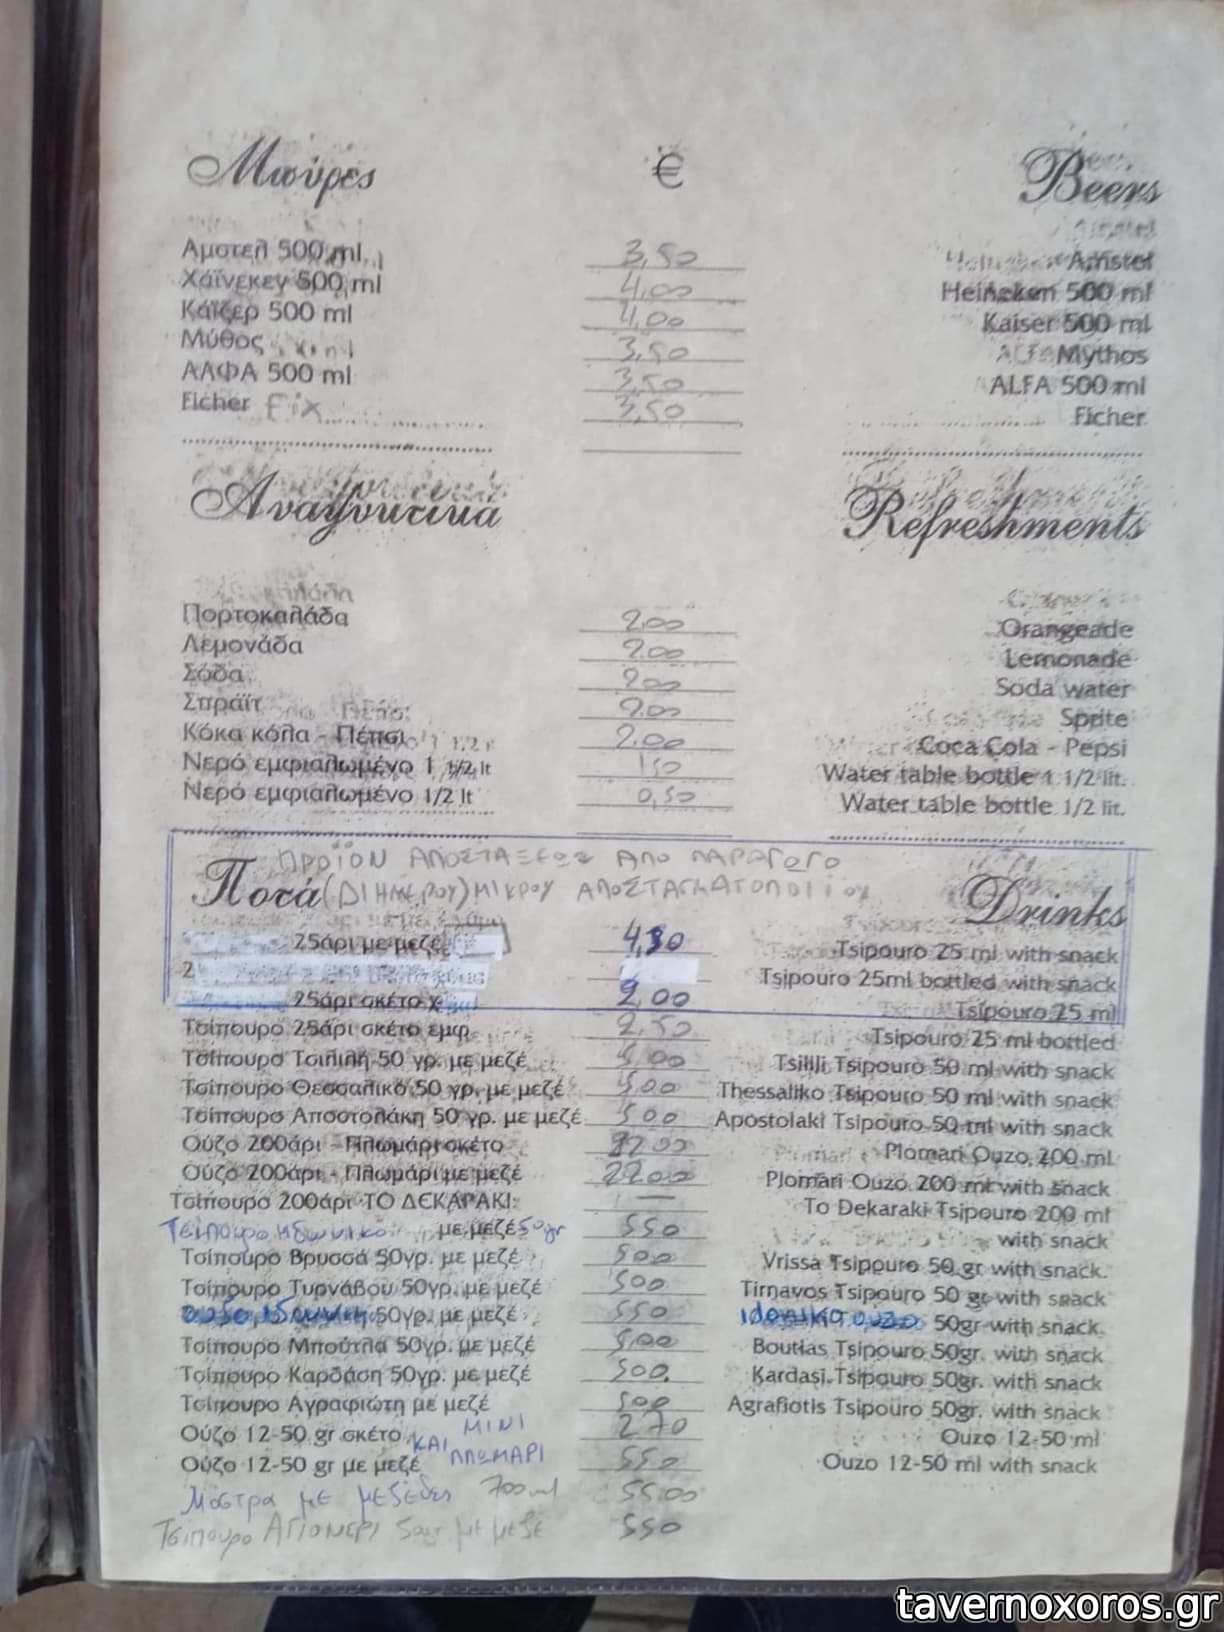 Μπύρες € Beers
Αμστελ 500 ml 3,50 Amstel
Χάϊνεκεν 500 ml 4,00 Heineken 500 ml
Κάϊζερ 500 ml 4,00 Kaiser 500 ml
Μύθος 3,50 Mythos
ΑΛΦΑ 500 ml 3,50 ALFA 500 ml
Ficher Fix 3,50 Ficher
Αναψυκτικά Refreshments
Πορτοκαλάδα 2.00 Orangeade
Λεμονάδα 2.00 Lemonade
Σόδα 2.00 Soda water
Σπράϊτ 2.00 Sprite
Κόκα κόλα - Πέπσι 2.00 Coca Cola - Pepsi
Νερό εμφιαλωμένο 1 1/2 lt 150 Water table bottle 1 1/2 lit.
Νερό εμφιαλωμένο 1/2 lt 0,50 Water table bottle 1/2 lit.
ΠΡΟΪΟΝ ΑΠΟΣΤΑΞΕΩΣ ΑΠΟ ΠΑΡΑΓΩΓΟ
Ποτά (ΔΙΗΜΕΡΟΥ) ΜΙΚΡΟΥ ΑΠΟΣΤΑΓΜΑΤΟΠΟΙΙΟΥ Drinks
25άρι με μεζέ Tsipouro 25 ml with snack
2 Tsipouro 25ml bottled with snack
25άρι σκέτο χ 2,00 Tsipouro 25 ml
Τσίπουρο 25άρι σκέτο εμφ. 2.50 Tsipouro 25 ml bottled
Τσίπουρο Τσιλιλή 50 γρ. με μεζέ 5,00 Tsilili Tsipouro 50 ml with snack
Τσίπουρο Θεσσαλικό 50 γρ. με μεζέ 500 Thessaliko Tsipouro 50 ml with snack
Τσίπουρο Αποστολάκη 50 γρ. με μεζέ 500 Apostolaki Tsipouro 50 ml with snack
Ούζο 200άρι - Πλωμάρι σκέτο Plomari Ouzo 200 ml
Ούζο 200άρι - Πλωμάρι με μεζέ 22.00 Plomari Ouzo 200 ml with snack
Τσίπουρο 200άρι ΤΟ ΔΕΚΑΡΑΚΙ: — To Dekaraki Tsipouro 200 ml
Τσίπουρο ηδωνικο με μεζέ 50gr 550 with snack
Τσίπουρο Βρυσσά 50γρ. με μεζέ 500 Vrissa Tsipouro 50 gr with snack.
Τσίπουρο Τυρνάβου 50γρ. με μεζέ 500 Tirnavos Tsipouro 50 gr with snack
ουζο 50γρ. με μεζέ 550 idoniko ouzo 50gr with snack.
Τσίπουρο Μπούτλα 50γρ. με μεζέ 5,00 Boutlas Tsipouro 50gr. with snack
Τσίπουρο Καρδάση 50γρ. με μεζέ 500. Kardasi Tsipouro 50gr. with snack
Τσίπουρο Αγραφιώτη με μεζέ 500 Agrafiotis Tsipouro 50gr. with snack
Ούζο 12-50 gr σκέτο ΜΙΝΙ 270 Ouzo 12-50 ml
ΚΑΙ ΠΛΩΜΑΡΙ
Ούζο 12-50 gr με μεζέ 550 Ouzo 12-50 ml with snack
Μοστρα με μεζεδες 700ml 55.00
Τσιπουρο ΑΓΙΟΝΕΡΙ 50gr με μεζε 550
tavernoxoros.gr